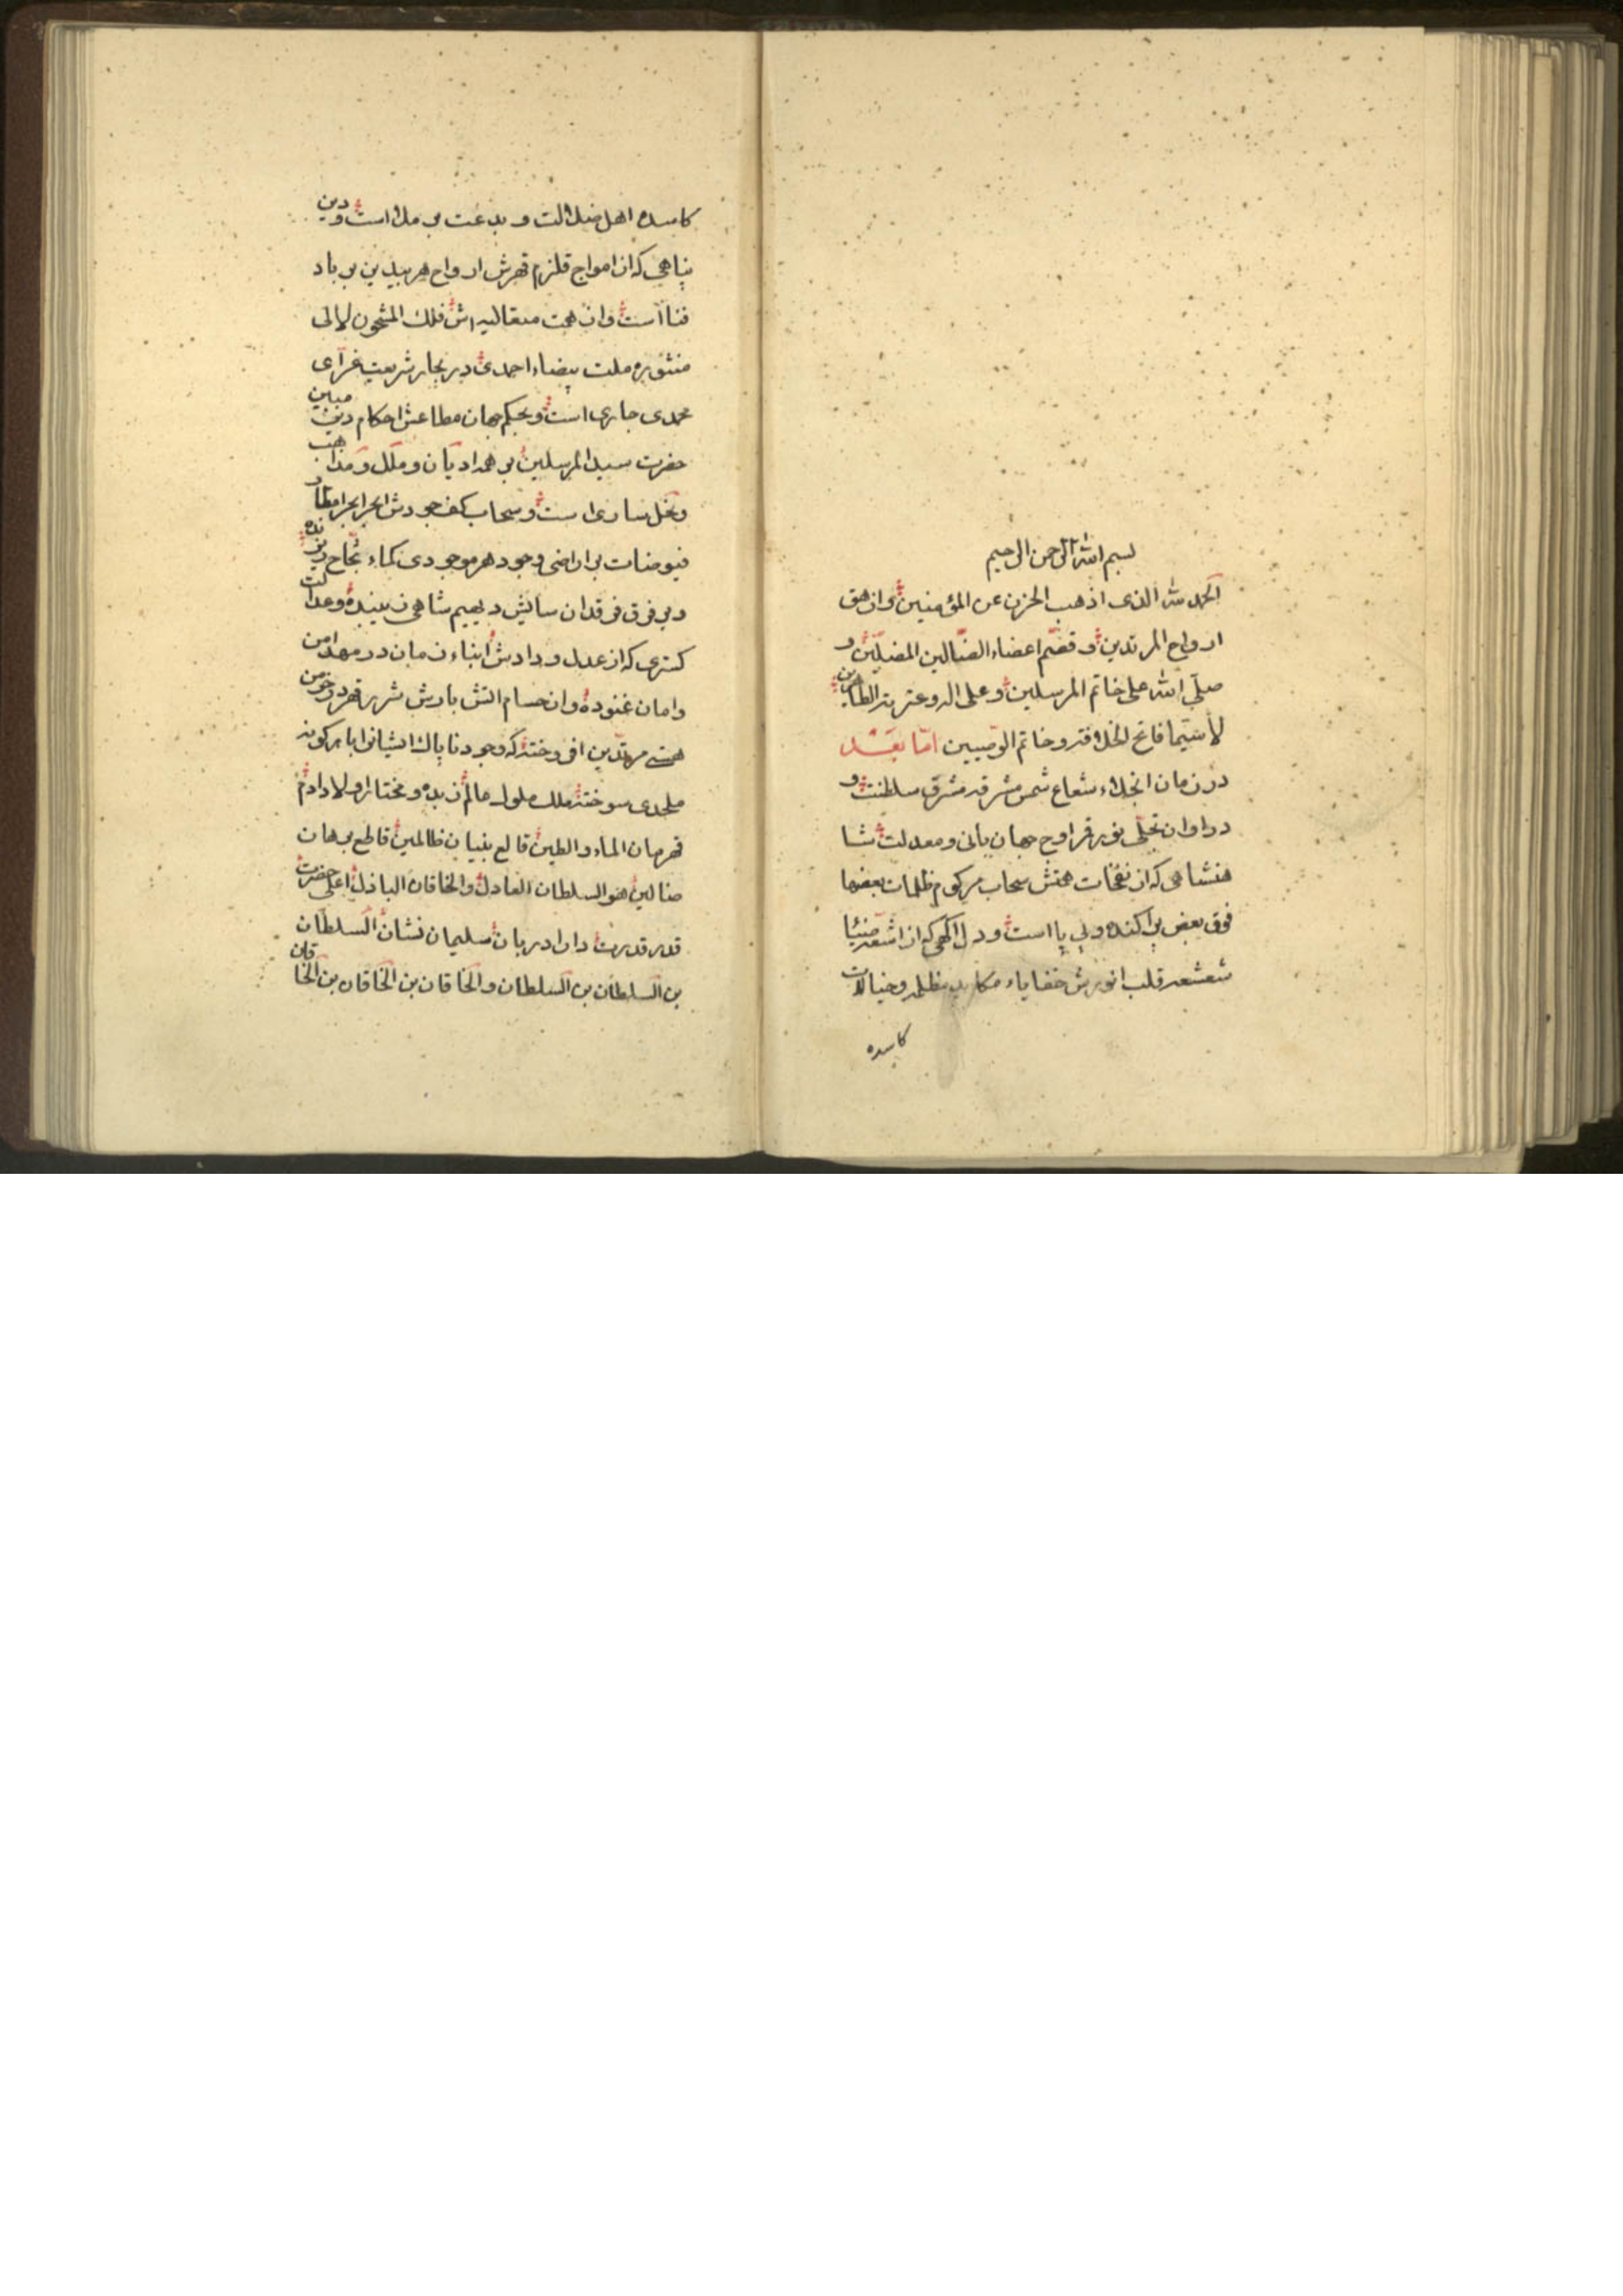 بسم الله الرحمن الرحیم
الحمد لله الذی اذهب الحزن عن المؤمنین وازهق
ارواح المرتدین و قصّم اعضاء الضّالین المضلّین و
صلّی الله علی خاتم المرسلین و علی اله وعترته الطاهرین
لاسیّما فاتح الخلافة و خاتم الوصیین امّا بعد
در زمان انجلاء شعاع شمس مشرقه مشرق سلطنت و
در اوان تجلّی نور قمر اوج جهان بانی و معدلت شا
هنشاهی که از نفخات همتش سحاب مرکوم ظلمات بعضها
فوق بعض پراکنده و بر پا است و دل اکهی که از اشعه ضیا
شعشعه قلب انورش خفایاء مکاید مظلمه و خیالات
کاسده
کاسده اهل ضلالت و بدعت بر ملا است و دین
پناهی که از امواج قلزم قهرش ارواح هر بیدین بر باد
فنا است و از همت متعالیه اش فلك المشحون لالی
منثوره ملت بیضاء احمدی در بحار شریعت غرآی
محمدی جاری است و بحکم جهان مطاعش احکام دین مبین
حضرت سید المرسلین بر همه ادیان و ملل و مذاهب
و نحل ساری است و سحاب کف جودش ابحر ابحر امطار
فیوضات بر اراضی وجود هر موجودی کماء ثجّاج ریزنده
و بر فرق فرقدان سایش دیهیم شاهی زیبنده و عدالت
کستری که از عدل و دادش ابناء زمان در مهد امن
وامان غنوده و از حسام اتش بارش شرر قهر در خرمن
هستی مرتدین افروخته که وجود ناپاك ایشانرا بهر کونه
ملحدی سوخته ملك ملوك عالم زبده و مختار اولاد ادم
قهرمان الماء والطین قالع بنیان ظالمین قاطع برهان
ضالین هو السلطان العادل والخاقان الباذل اعلی حضرت
قدر قدرت دارا دربان سلیمان نشان السلطان
بن السلطان بن السلطان و الخاقان بن الخاقان بن الخاقان